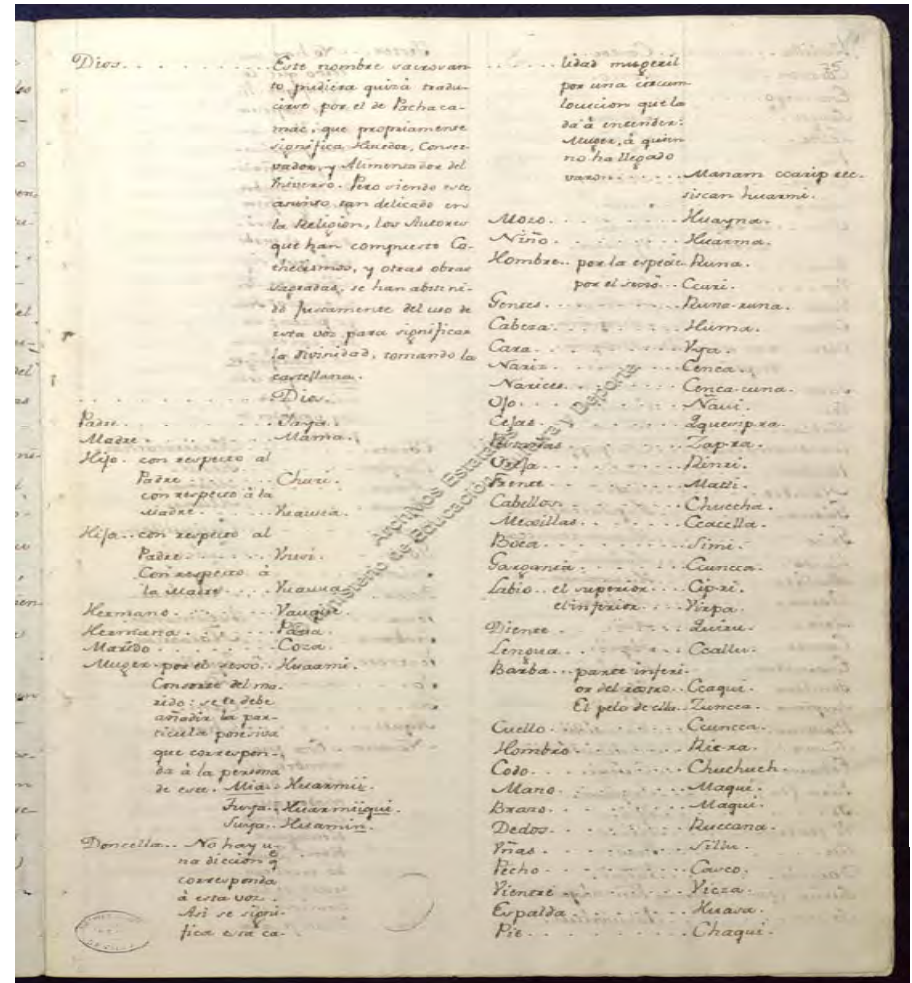 Dios . . . . . . . . Este nombre sacrosan-
to pudiera quizá tradu-
cirse por el de Pachaca-
mác, que propiamente
significa, Hacedor, Conser-
vador, y Alimentador del
Universo. Pero siendo este
asunto tan delicado en
la Religion, los Autores
que han compuesto Ca-
thecismos, y otras obras
sagradas, se han absteni-
do justamente del uso de
esta voz para significar
la divinidad, tomando la
castellana.
. . . . . . . . Dios.
Padre . . . . . . . . Yaya.
Madre . . . . . . . . Mama.
Hijo . con respecto al
Padre . . . . . . Churi.
con respecto à la
Madre . . . . . . Huaua.
Hija . . con respecto al
Padre . . . . . . Ususi.
Con respecto à
la Madre . . . . Huaua.
Hermano . . . . . . Vauqui.
Hermana . . . . . . Pana.
Marido . . . . . . . Coza.
Muger . por el sexo . . Huarmi.
Consorte del ma-
rido: se le debe
añadir la par-
ticula posesiva
que correspon-
da à la persona
de este. Mia . . Huarmii.
Tuya . . Huarmiiqui.
Suya . . Huarmin.
Doncella . . No hay u-
na diccion q̃
corresponda
à esta voz.
Asi se signi-
fica esta ca-
lidad mugeril
por una circum
locucion que la
da à entender:
Muger, à quien
no ha llegado
varon . . . . . . Manam ccarip rec-
siscan huarmi.
Mozo . . . . . . . . Huayna.
Niño . . . . . . . . Huarma.
Hombre . . por la especie. Runa.
por el sexo . . . Ccari.
Gentes . . . . . . . Runa-runa.
Cabeza . . . . . . . Huma.
Cara . . . . . . . . Vya.
Nariz . . . . . . . Cenca.
Narices . . . . . . Cenca-cuna.
Ojo . . . . . . . . Ñaui.
Cejas . . . . . . . Qquesipra.
Pestañas . . . . . . Zapra.
Oreja . . . . . . . Rinri.
Frente . . . . . . . Matti.
Cabellos . . . . . . Chuccha.
Mexillas . . . . . . Ccaclla.
Boca . . . . . . . . Simi.
Garganta . . . . . . Ccuncca.
Labio . . el superior . . . Cip-ri.
el inferior . . . . Virpa.
Diente . . . . . . . Quiru.
Lengua . . . . . . . Ccallu.
Barba . . . parte inferi-
or del rostro . . Ccaqui.
El pelo de ella . . Zuncca.
Cuello . . . . . . . Ccuncca.
Hombro . . . . . . . Ric-ra.
Codo . . . . . . . . Chuchuch.
Mano . . . . . . . . Maqui.
Brazo . . . . . . . Maqui.
Dedos . . . . . . . Ruccana.
Vñas . . . . . . . . Sillu.
Pecho . . . . . . . Casco.
Vientre . . . . . . Vicza.
Espalda . . . . . . Huasa.
Pie . . . . . . . . Chaqui.
Archivos Estatales
Ministerio de Educación, Cultura y Deporte